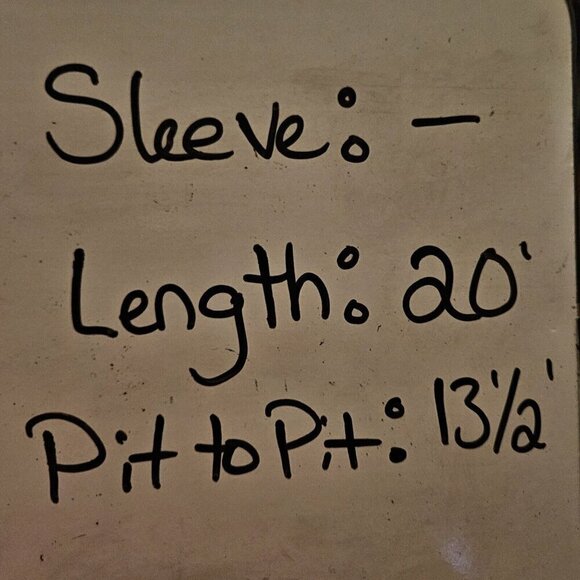 Sleeve: —
Length: 20'
Pit to Pit: 13 1/2'